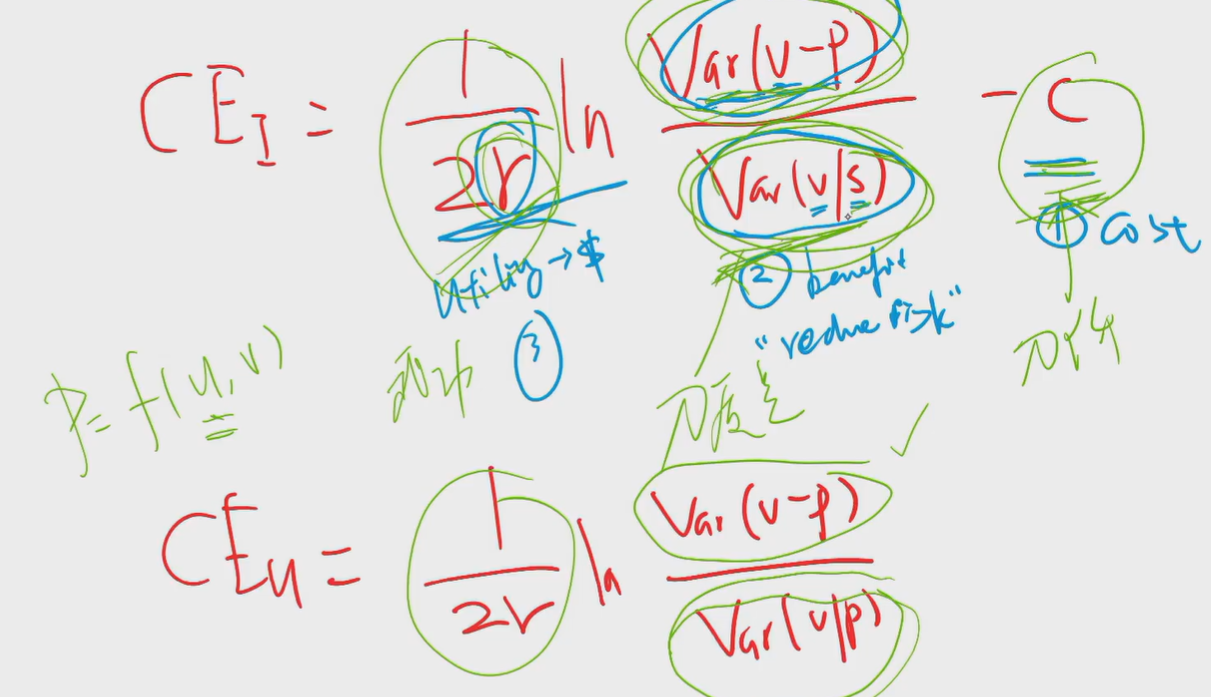 CE_I = 1/(2r) ln Var(v-p)/Var(v|s) - C
utility → $
③
② benefit
"reduce risk"
① Cost
P = f(u, v)
CE_u = 1/(2r) ln Var(v-p)/Var(v|p)